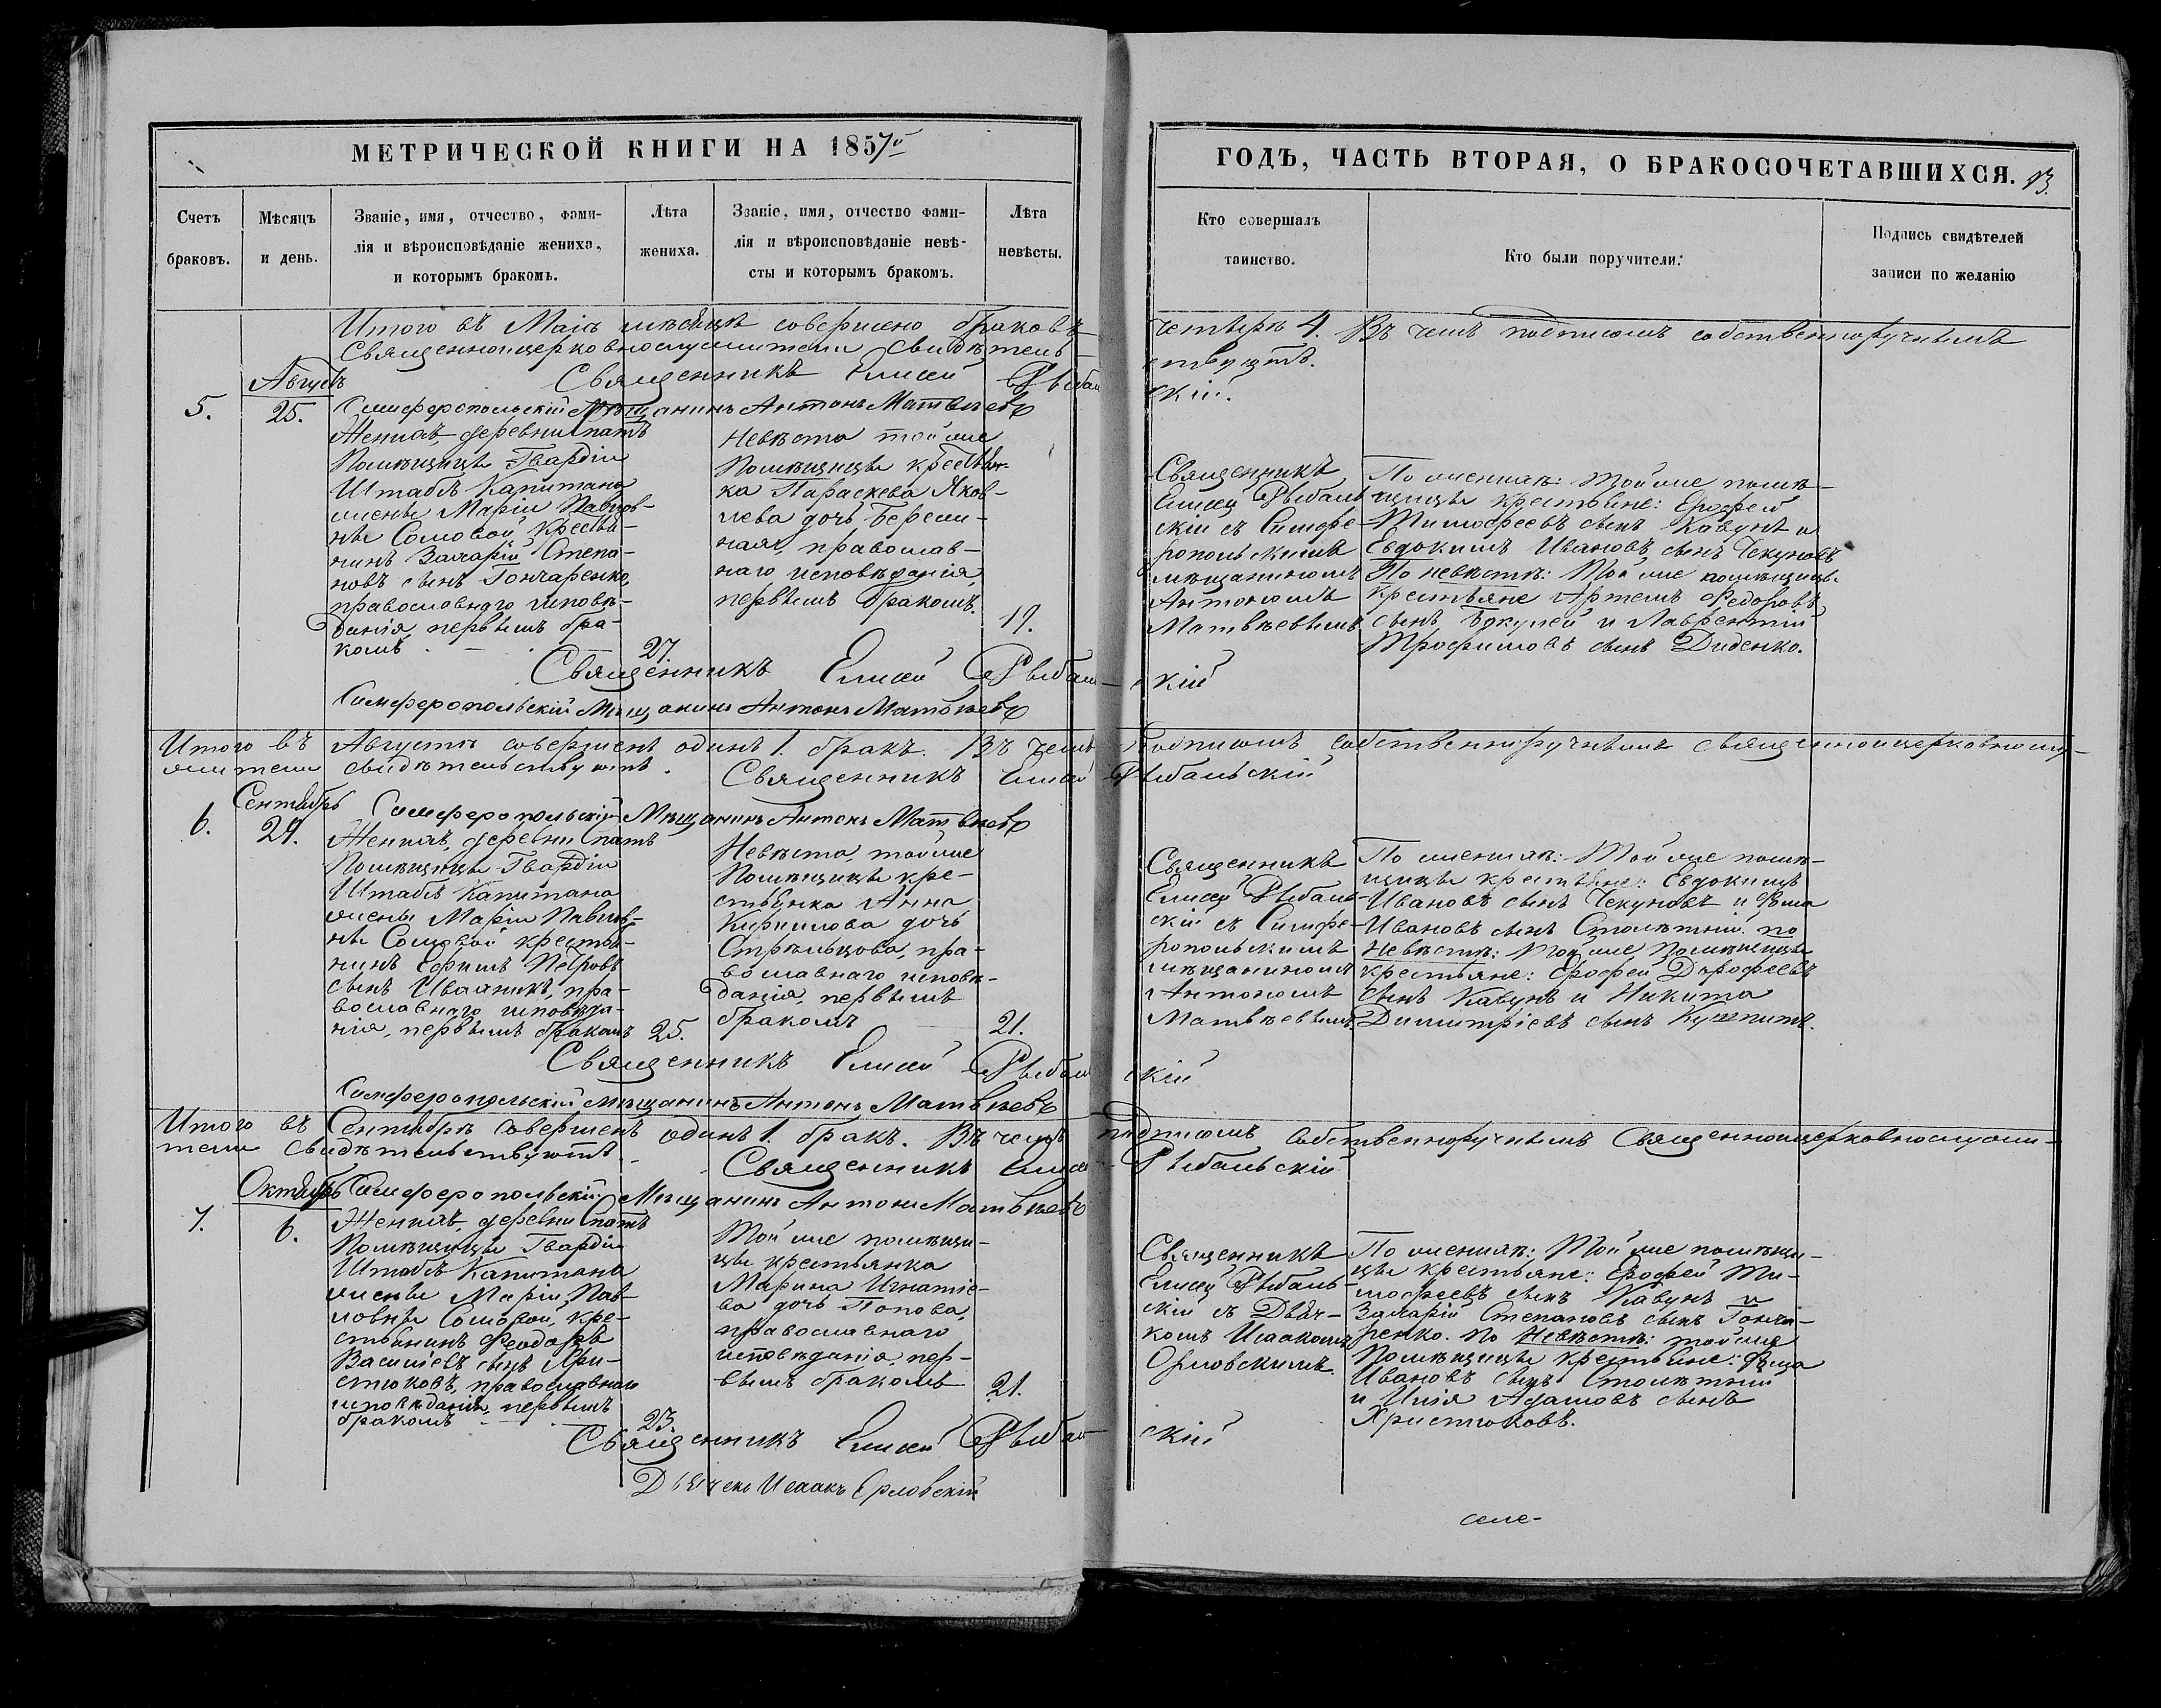 МЕТРИЧЕСКОЙ КНИГИ НА 1857й
Счетъ браковъ.
Мѣсяцъ и день.
Званіе, имя, отчество, фами-
лія и вѣроисповѣданіе жениха,
и которымъ бракомъ.
Лѣта
жениха.
Званіе, имя, отчество фами-
лія и вѣроисповѣданіе невѣ-
сты и которымъ бракомъ.
Лѣта
невѣсты.
ГОДЪ, ЧАСТЬ ВТОРАЯ, О БРАКОСОЧЕТАВШИХСЯ.
Кто совершалъ
таинство.
Кто были поручители.
Подпись свидѣтелей
записи по желанію
Итого въ Маіѣ мѣсяцѣ совершено браковъ четыре 4. Въ чемъ подписомъ собственноручнымъ
Священноцерковнослужители свидѣтель-
ствуютъ.
Священникъ Елисей Рыбальскій.
Симферопольскій Мѣщанинъ Антонъ Матвѣевъ
Августъ
5.
25.
Женихъ, деревни Спатъ
Помѣщицы Гвардіи
Штабъ Капитана
жены Маріи Павлов-
ны Сомовой, крестья-
нинъ Захарій Степа-
новъ сынъ Гончаренко,
православнаго исповѣ-
данія, первымъ бра-
комъ
27.
Невѣста той же
Помѣщицы крестьян-
ка Параскева Яков-
лева дочь Бережи-
ная, православ-
наго исповѣданія,
первымъ бракомъ.
19.
Священникъ
Елисей Рыбаль-
скій съ Симфе-
ропольскимъ
мѣщаниномъ
Антономъ
Матвѣевымъ.
По женихѣ: той же помѣ-
щицы крестьяне: Ерофей
Тимофеевъ сынъ Кавунъ и
Евдокимъ Ивановъ сынъ Чекуновъ
По невѣстѣ: Той же помѣщицы
крестьяне Артемъ Федоровъ
сынъ и Лаврентій
Трофимовъ сынъ Диденко.
Священникъ Елисей Рыбальскій
Симферопольскій Мѣщанинъ Антонъ Матвѣевъ
Итого въ Августѣ совершенъ одинъ 1. бракъ. Въ чемъ подписомъ собственноручнымъ священноцерковнослу-
жители свидѣтельствуютъ. Священникъ Елисей Рыбальскій
Симферопольскій Мѣщанинъ Антонъ Матвѣевъ
Сентябрь
6.
29.
Женихъ, деревни Спатъ
Помѣщицы Гвардіи
Штабъ Капитана
жены Маріи Павлов-
ны Сомовой крестья-
нинъ Ефимъ Петровъ
сынъ Ивахникъ, пра-
вославнаго исповѣда-
нія, первымъ бракомъ
25.
Невѣста, той же
Помѣщицы кре-
стьянка Анна
Кирилова дочь
Стрѣльцова, пра-
вославнаго исповѣ-
данія, первымъ
бракомъ
21.
Священникъ
Елисей Рыбаль-
скій съ Симфе-
ропольскимъ
мѣщаниномъ
Антономъ
Матвѣевымъ.
По женихѣ: Той же помѣ-
щицы крестьяне: Евдокимъ
Ивановъ сынъ Чекуновъ и Ѳома
Ивановъ сынъ Столѣтній. по
Невѣстѣ: той же Помѣщицы
крестьяне: Ерофей Дорофеевъ
сынъ Кавунъ и Никита
Димитріевъ сынъ
Священникъ Елисей Рыбальскій
Симферопольскій мѣщанинъ Антонъ Матвѣевъ
Итого въ Сентябрѣ совершенъ одинъ 1. бракъ. Въ чемъ подписомъ собственноручнымъ Священноцерковнослужи-
тели свидѣтельствуютъ. Священникъ Елисей Рыбальскій
Симферопольскій Мѣщанинъ Антонъ Матвѣевъ
Октябрь
7.
6.
Женихъ, деревни Спатъ
Помѣщицы Гвардіи
Штабъ Капитана
жены Маріи Пав-
ловны Сомовой, кре-
стьянинъ Феодоръ
Васильевъ сынъ Хри-
стюковъ, православнаго
исповѣданія, первымъ
бракомъ
23.
Той же помѣщи-
цы крестьянка
Марина Игнатіе-
ва дочь Попова,
православнаго
исповѣданія, пер-
вымъ бракомъ
21.
Священникъ
Елисей Рыбаль-
скій съ Дьяч-
комъ Исаакомъ
Орловскимъ.
По женихѣ: Той же помѣщи-
цы крестьяне: Ерофей Ти-
мофеевъ сынъ Кавунъ и
Захарій Степановъ сынъ Гонча-
ренко. по Невѣстѣ: той же
Помѣщицы крестьяне: Ѳома
Ивановъ сынъ Столѣтній
и Илія Адамовъ сынъ
Христюковъ.
Священникъ Елисей Рыбальскій
Дьячекъ Исаакъ Орловскій